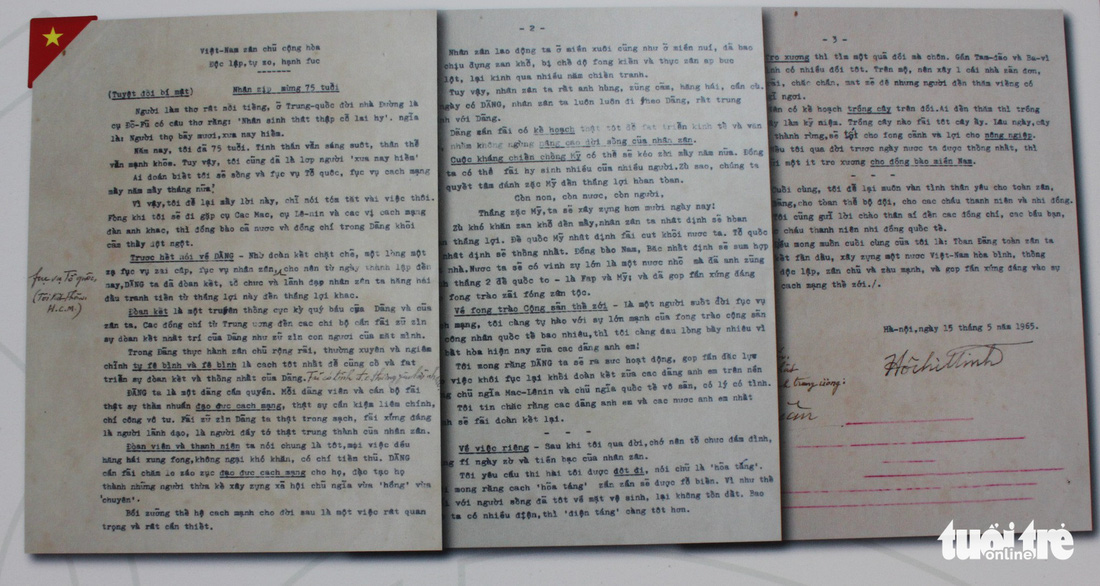 Việt-Nam zân chủ cộng hòa
Độc lập, tự zo, hạnh fuc
(Tuyệt đối bí mật) Nhân zịp mừng 75 tuổi
Người làm thơ rất nổi tiếng, ở Trung-quốc đời nhà Đường là
cụ Đỗ-Fủ có câu thơ rằng: 'Nhân sinh thất thập cổ lai hy'. nghĩa
là: Người thọ bảy mươi, xưa nay hiếm.
Năm nay, tôi đã 75 tuổi. Tinh thần vẫn sáng suốt, thân thể
vẫn mạnh khỏe. Tuy vậy, tôi cũng đã là lớp người 'xưa nay hiếm'
Ai đoán biết tôi sẽ sống và fục vụ Tổ quốc, fục vụ cách mạng
mấy năm mấy tháng nữa?
Vì vậy, tôi để lại mấy lời này, chỉ nói tóm tắt vài việc thôi.
Fòng khi tôi sẽ đi gặp cụ Cac Mac, cụ Lê-nin và các vị cách mạng
đàn anh khác, thì đồng bào cả nước và đồng chí trong Đảng khỏi
cảm thấy đột ngột.
Trước hết nói về ĐẢNG - Nhờ đoàn kết chặt chẽ, một lòng một
zạ fục vụ zai cấp, fục vụ nhân zân, cho nên từ ngày thành lập đến
nay, ĐẢNG ta đã đoàn kết, tổ chức và lãnh đạo nhân zân ta hăng hái
đấu tranh tiến từ thắng lợi này đến thắng lợi khác.
fục vụ Tổ quốc,
H.C.M)
Đoàn kết là một truyền thống cực kỳ quý báu của Đảng và của
zân ta. Các đồng chí từ Trung ương đến các chi bộ cần fải zữ zìn
sự đoàn kết nhất trí của Đảng như zữ zìn con ngươi của mắt mình.
Trong Đảng thực hành zân chủ rộng rãi, thường xuyên và nghiêm
chỉnh tự fê bình và fê bình là cách tốt nhất để củng cố và fat
triển sự đoàn kết và thống nhất của Đảng. Fải có tình
ĐẢNG ta là một đảng cầm quyền. Mỗi đảng viên và cán bộ fải
thật sự thấm nhuần đạo đức cách mạng, thật sự cần kiệm liêm chính,
chí công vô tư. Fải zữ zìn Đảng ta thật trong sạch, fải xứng đáng
là người lãnh đạo, là người đầy tớ thật trung thành của nhân zân.
Đoàn viên và thanh niên ta nói chung là tốt, mọi việc đều
hăng hái xung fong, không ngại khó khăn, có chí tiến thủ. ĐẢNG
cần fải chăm lo záo zục đạo đức cách mạng cho họ, đào tạo họ
thành những người thừa kế xây zựng xã hội chủ nghĩa vừa 'hồng' vừa
'chuyên'.
Bồi zưỡng thế hệ cách mạng cho đời sau là một việc rất quan
trọng và rất cần thiết.
- 2 -
Nhân zân lao động ta ở miền xuôi cũng như ở miền nuí, đã bao
chịu đựng zan khổ, bị chế độ fong kiến và thực zân ap bức
lột, lại kinh qua nhiều năm chiến tranh.
Tuy vậy, nhân zân ta rất anh hùng, zũng cảm, hăng hái, cần cù.
ngày có ĐẢNG, nhân zân ta luôn luôn đi theo Đảng, rất trung
với Đảng.
Đảng cần fải có kế hoạch thật tốt để fat triển kinh tế và văn
nhằm không ngừng nâng cao đời sống của nhân zân.
Cuộc kháng chiến chống Mỹ có thể sẽ kéo zài mấy năm nữa. Đồng
ta có thể fải hy sinh nhiều của nhiều người. Zù sao, chúng ta
quyết tâm đánh zặc Mỹ đến thắng lợi hoàn toàn.
Còn non, còn nước, còn người,
Thắng zặc Mỹ, ta sẽ xây zựng hơn mười ngày nay!
Zù khó khăn zan khổ đến mấy, nhân zân ta nhất định sẽ hoàn
thắng lợi. Đế quốc Mỹ nhất định fải cut khỏi nước ta. Tổ quốc
nhất định sẽ thống nhất. Đồng bào Nam, Bắc nhất định sẽ sum họp
nhà. Nước ta sẽ có vinh zự lớn là một nước nhỏ mà đã anh zũng
thắng 2 đế quốc to - là Fap và Mỹ; và đã góp fần xứng đáng
fong trào zải fóng zân tộc.
Về fong trào Cộng sản thế zới - là một người suốt đời fục vụ
mạng, tôi càng tự hào với sự lớn mạnh của fong trào cộng sản
công nhân quốc tế bao nhiêu, thì tôi càng đau lòng bấy nhiêu vì
bất hòa hiện nay zữa các đảng anh em!
Tôi mong rằng ĐẢNG ta sẽ ra sức hoạt động, góp fần đắc lực
việc khôi fục lại khối đoàn kết zữa các đảng anh em trên nền
chủ nghĩa Mac-Lênin và chủ nghĩa quốc tế vô sản, có lý có tình.
Tôi tin chắc rằng các đảng anh em và các nước anh em nhất
sẽ fải đoàn kết lại.
- - -
Về việc riêng - Sau khi tôi qua đời, chớ nên tổ chức đám đình,
fí ngày zờ và tiền bạc của nhân zân.
Tôi yêu cầu thi hài tôi được đốt đi, nói chữ là 'hỏa táng'.
mong rằng cách 'hỏa táng' zần zần sẽ được fổ biến. Vì như thế
với người sống đã tốt về mặt vệ sinh, lại không tốn đất. Bao
ta có nhiều điện, thì 'điện táng' càng tốt hơn.
- 3 -
tro xương thì tìm một quả đồi mà chôn. Gần Tam-đảo và Ba-vì
có nhiều đồi tốt. Trên mộ, nên xây 1 cái nhà zản đơn,
chắc chắn, mát sẽ để những người đến thăm viếng có
nghỉ ngơi.
Nên có kế hoạch trồng cây trên đồi. Ai đến thăm thì trồng
cây làm kỷ niệm. Trồng cây nào fải tốt cây ấy. Lâu ngày, cây
thành rừng, sẽ lợi cho fong cảnh và lợi cho nông ngiệp.
Nếu tôi qua đời trước ngày nước ta được thống nhất, thì
một ít tro xương cho đồng bào miền Nam.
- - -
Cuối cùng, tôi để lại muôn vàn tình thân yêu cho toàn zân,
Đảng, cho toàn thể bộ đội, cho các cháu thanh niên và nhi đồng.
Tôi cũng gửi lời chào thân aí đến các đồng chí, các bầu bạn,
cháu thanh niên nhi đồng quốc tế.
mong muốn cuối cùng của tôi là: Toàn Đảng toàn zân ta
kết fấn đấu, xây zựng một nước Việt-Nam hòa bình, thống
độc lập, zân chủ và zàu mạnh, và góp fần xứng đáng vào sự
cách mạng thế zới./.
Hà-nội, ngày 15 tháng 5 năm 1965.
Hồ Chí Minh
trung ương:
tuổi trẻ
online